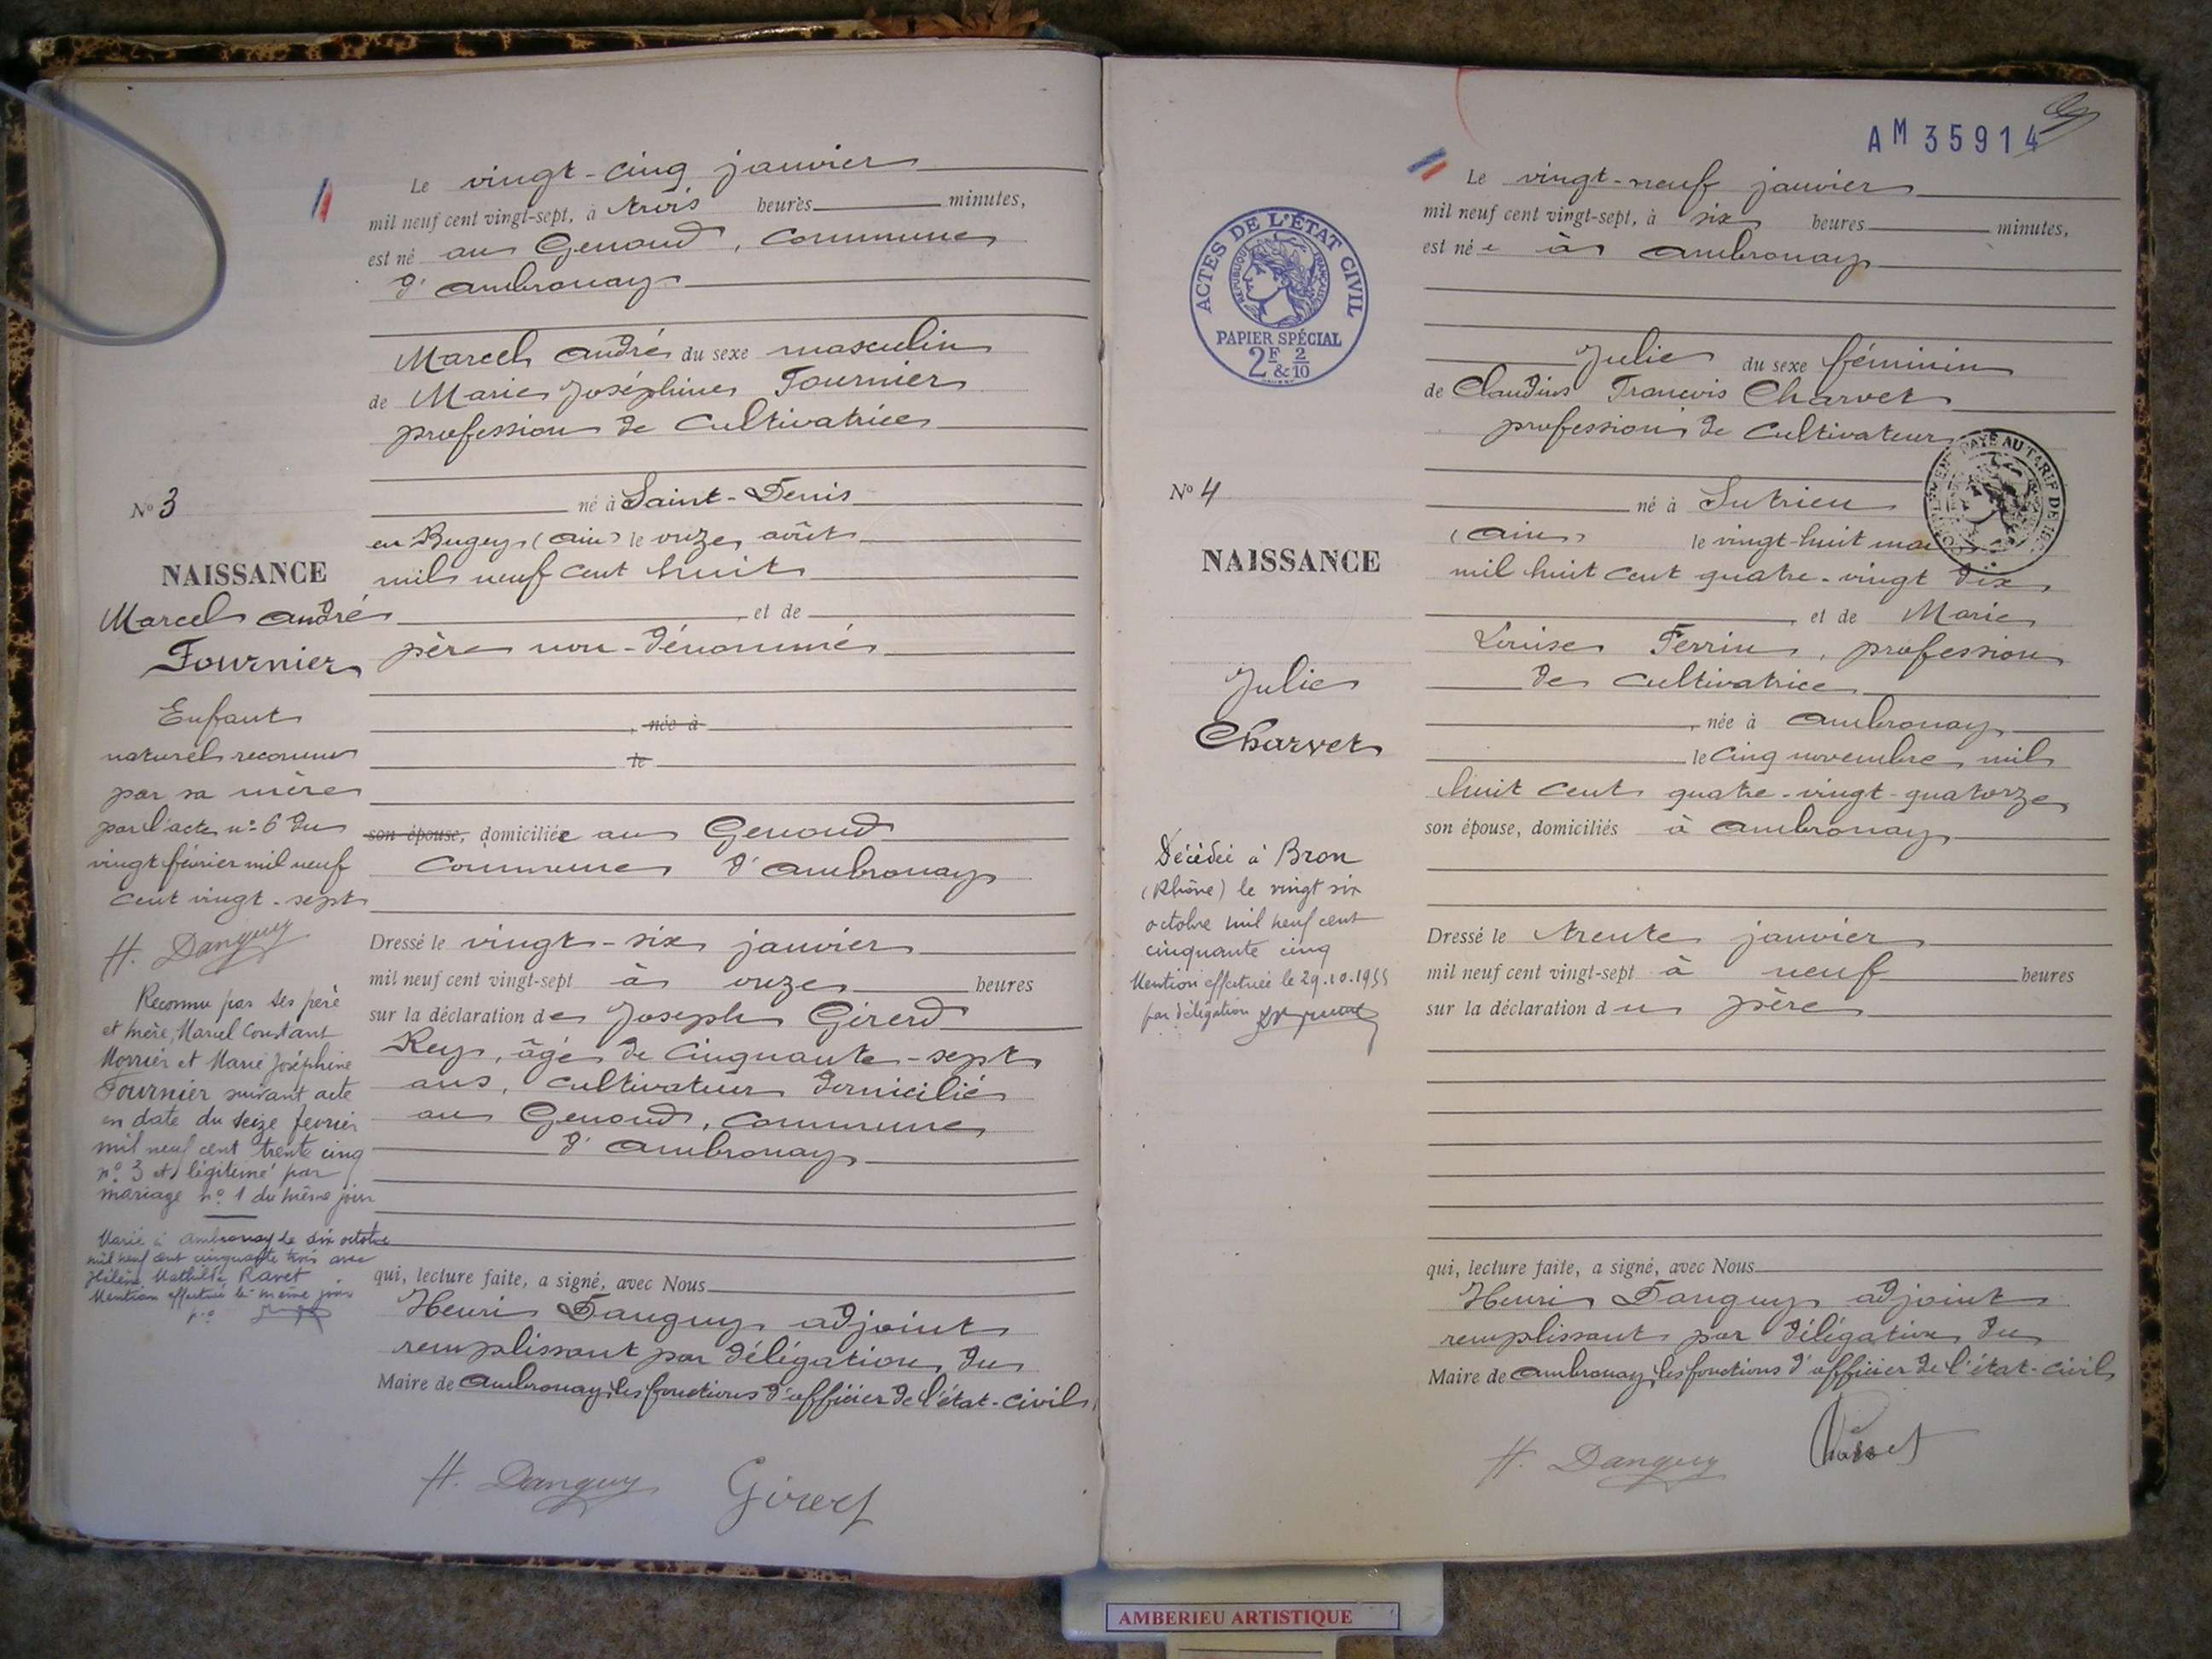 Le vingt-cinq janvier
mil neuf cent vingt-sept, à trois heures minutes,
est né au Genoud, commune
d'Ambronay
Marcel André du sexe masculin
de Marie Joséphine Fournier
profession de cultivatrice
né à Saint-Denis
en Bugey (Ain) le onze août
mil neuf cent huit
et de
père non-dénommé
, née à
le
son épouse, domiciliée au Genoud
commune d'Ambronay
Dressé le vingt-six janvier
mil neuf cent vingt-sept à onze heures
sur la déclaration de Joseph Girerd
Rey, âgé de cinquante-sept
ans, cultivateur domicilié
au Genoud, commune
d'Ambronay
qui, lecture faite, a signé, avec Nous
Henri Danguy adjoint
remplissant par délégation du
Maire de Ambronay, les fonctions d'officier de l'état-civil,
H. Danguy Girerd
No 3
NAISSANCE
Marcel André
Fournier
Enfant
naturel reconnu
par sa mère
par l'acte n° 6 du
vingt février mil neuf
cent vingt-sept
H. Danguy
Reconnu par ses père
et mère, Marcel Constant
Morrier et Marie Joséphine
Fournier suivant acte
en date du seize fevrier
mil neuf cent trente cinq
n° 3 et légitimé par
mariage n° 1 du même jour
Marié à Ambronay le dix octobre
mil neuf cent cinquante trois avec
Hélène Mathilde Ravet
Mention effectuée le même jour
AM 35914
Le vingt-neuf janvier
mil neuf cent vingt-sept, à six heures minutes,
est née à Ambronay
Julie du sexe féminin
de Claudius François Charvet
profession de cultivateur
né à Sutrieu
(Ain) le vingt-huit
mil huit cent quatre-vingt dix
, et de Marie
Louise Perrin, profession
de cultivatrice
, née à Ambronay
le cinq novembre mil
huit cent quatre-vingt-quatorze
son épouse, domiciliés à Ambronay
Dressé le trente janvier
mil neuf cent vingt-sept à neuf heures
sur la déclaration du père
qui, lecture faite, a signé, avec Nous
Henri Danguy adjoint
remplissant par délégation du
Maire de Ambronay, les fonctions d'officier de l'état-civil
H. Danguy Charvet
ACTES DE L'ÉTAT CIVIL
RÉPUBLIQUE FRANÇAISE
PAPIER SPÉCIAL
2F & 2/10
PAYÉ AU TARIF DE
No 4
NAISSANCE
Julie
Charvet
Décédée à Bron
(Rhône) le vingt six
octobre mil neuf cent
cinquante cinq
Mention effectuée le 29.10.1955
par délégation
AMBERIEU ARTISTIQUE